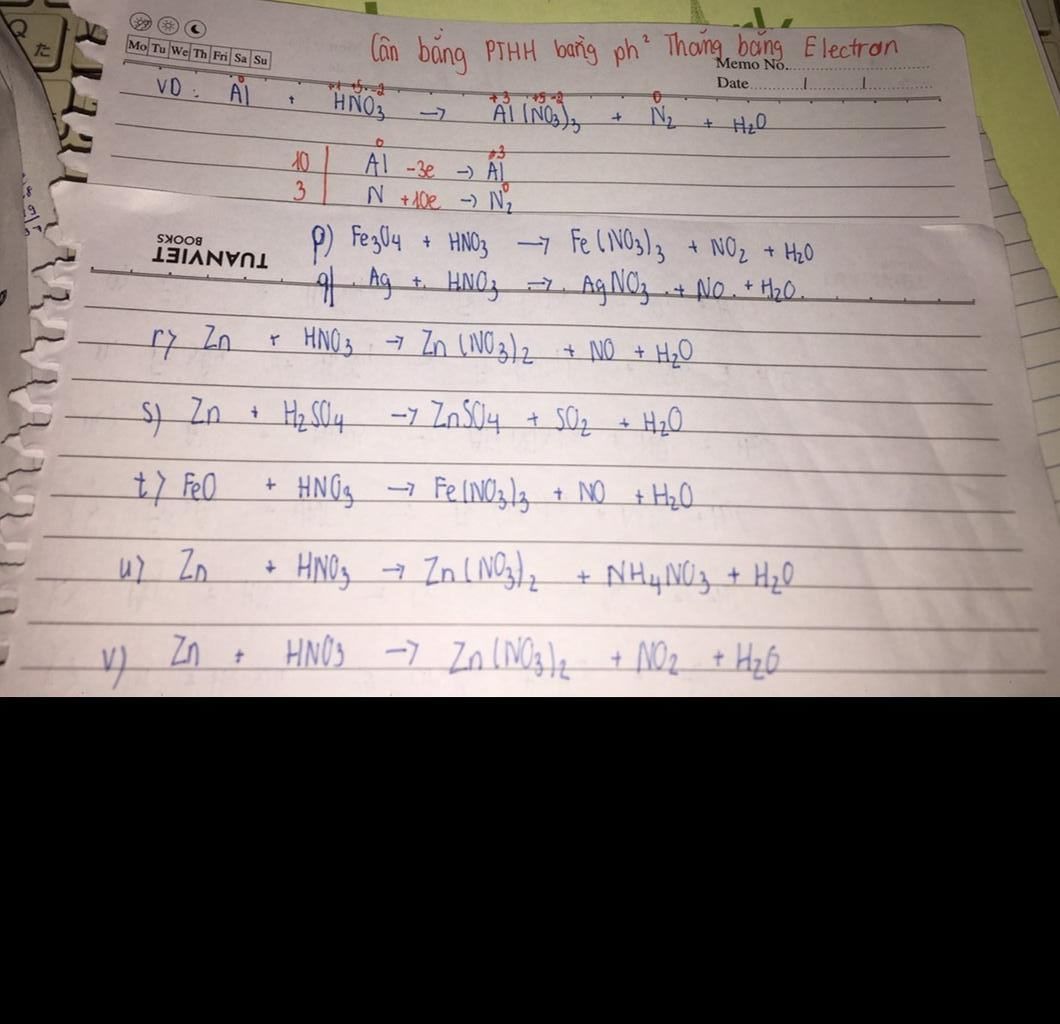 Mo Tu We Th Fri Sa Su
Cân bằng PTHH bằng ph² Thăng bằng Electron
Memo No.
Date
VD: Al⁰ + H⁺¹N⁺⁵O₃⁻² → Al⁺³(N⁺⁵O₃⁻²)₃ + N₂⁰ + H₂O
10 | Al⁰ -3e → Al⁺³
3 | N +10e → N₂⁰
p) Fe₃O₄ + HNO₃ → Fe(NO₃)₃ + NO₂ + H₂O
TUANVIET
BOOKS
q) Ag + HNO₃ → AgNO₃ + NO + H₂O
r) Zn + HNO₃ → Zn(NO₃)₂ + NO + H₂O
s) Zn + H₂SO₄ → ZnSO₄ + SO₂ + H₂O
t) FeO + HNO₃ → Fe(NO₃)₃ + NO + H₂O
u) Zn + HNO₃ → Zn(NO₃)₂ + NH₄NO₃ + H₂O
v) Zn + HNO₃ → Zn(NO₃)₂ + NO₂ + H₂O